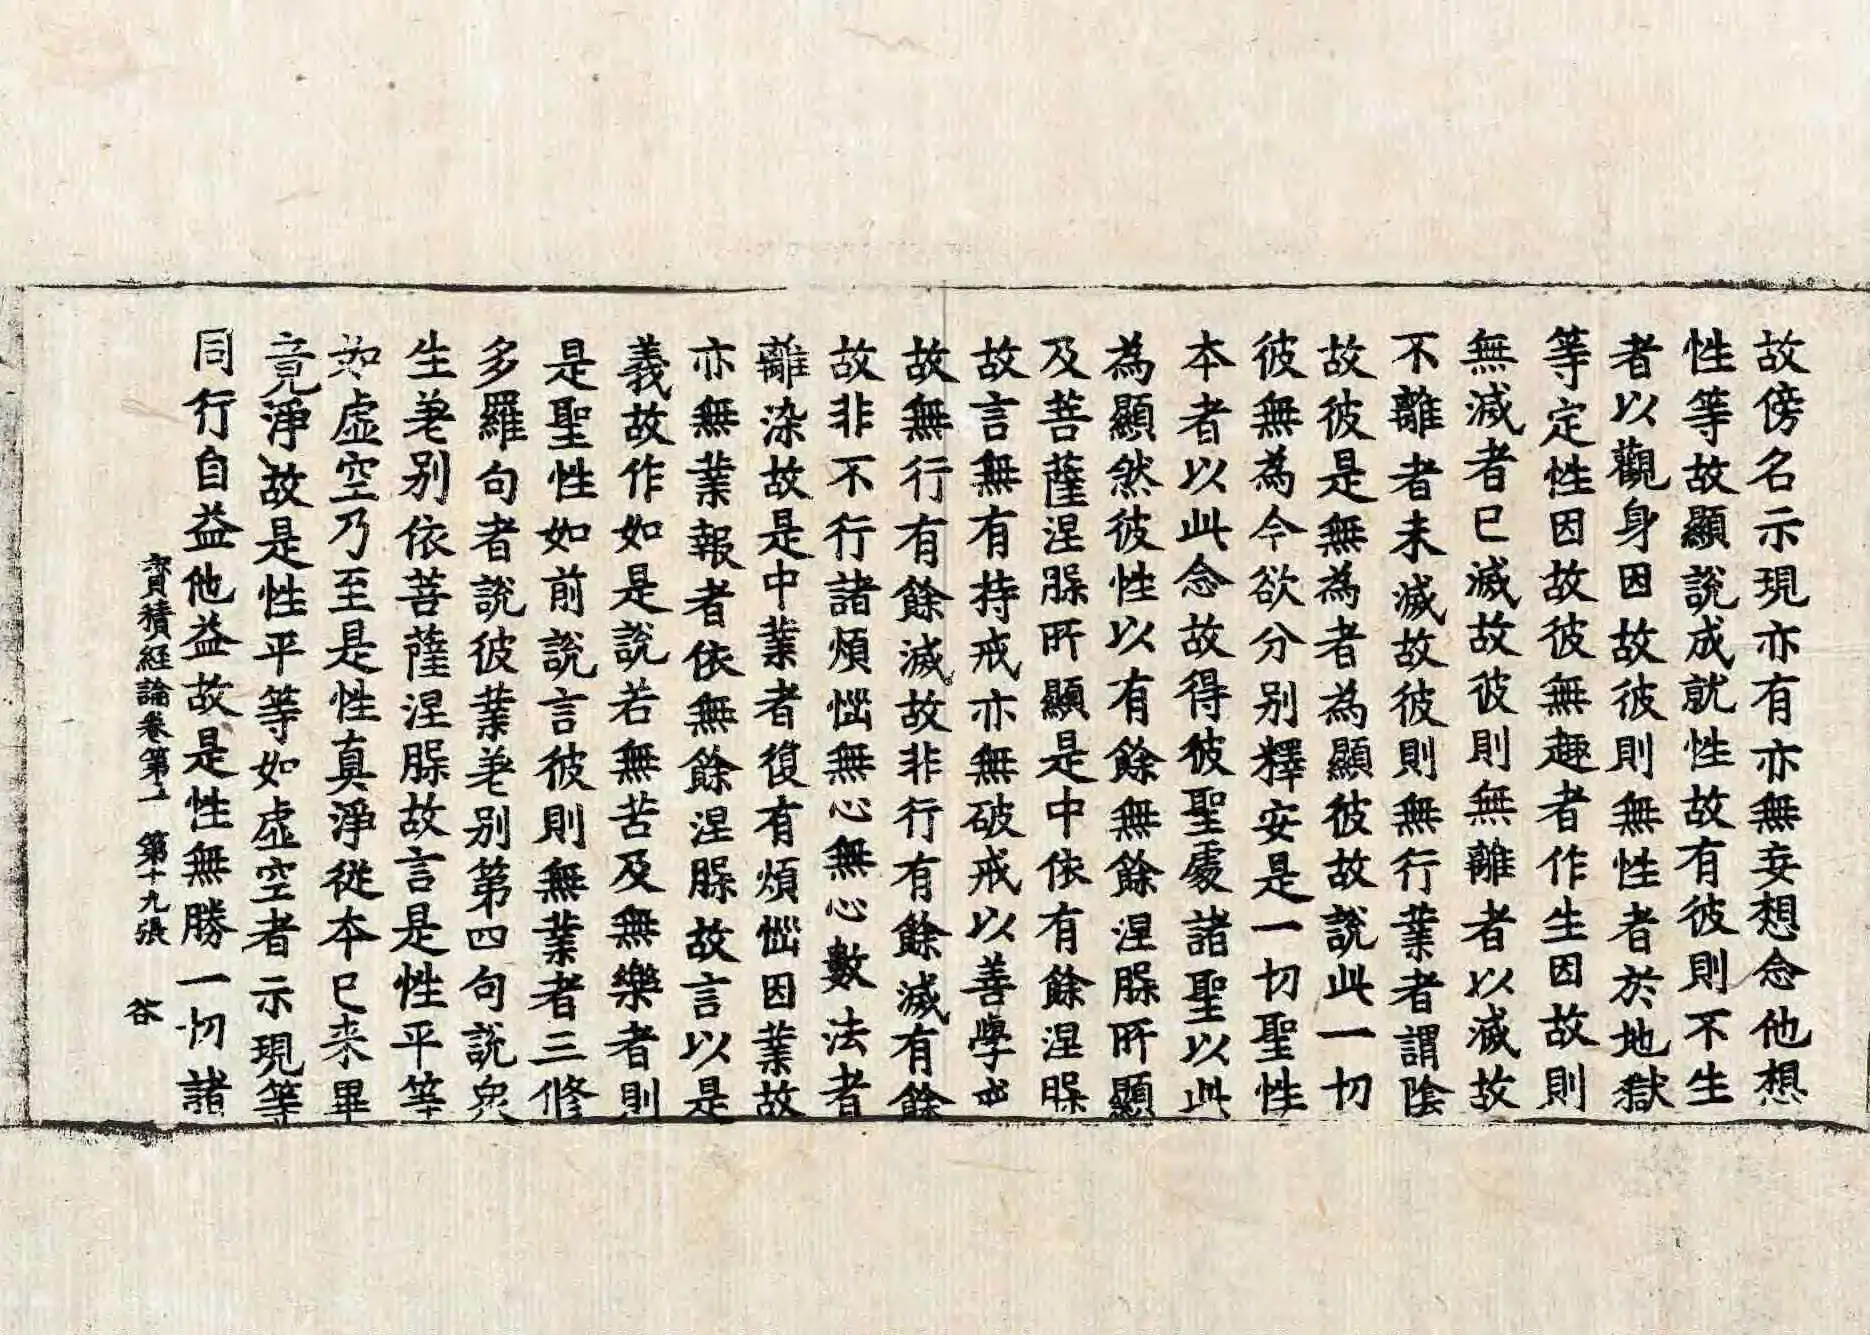 故傍名示現亦有亦無妄想念他想
性等故顯說成就性故有彼則不生
者以觀身因故彼則無性者於地獄
等定性因故彼無趣者作生因故則
無滅者已滅故彼則無離者以滅故
不離者未滅故彼則無行業者謂陰
故彼是無為者為顯彼故說此一切
彼無為今欲分別釋安是一切聖性
本者以此念故得彼聖處諸聖以此
為顯然彼性以有餘無餘涅槃所顯
及菩薩涅槃所顯是中依有餘涅槃
故言無有持戒亦無破戒以善學戒
故無行有餘滅故非行有餘滅有餘
故非不行諸煩惱無心無心數法者
離染故是中業者復有煩惱因業故
亦無業報者依無餘涅槃故言以是
義故作如是說若無苦及無樂者則
是聖性如前說言彼則無業者三修
多羅句者說彼業差別第四句說衆
生差別依菩薩涅槃故言是性平等
如虛空乃至是性真淨從本已来畢
竟淨故是性平等如虛空者示現等
同行自益他益故是性無勝一切諸
寶積經論卷第二 第十九張 谷